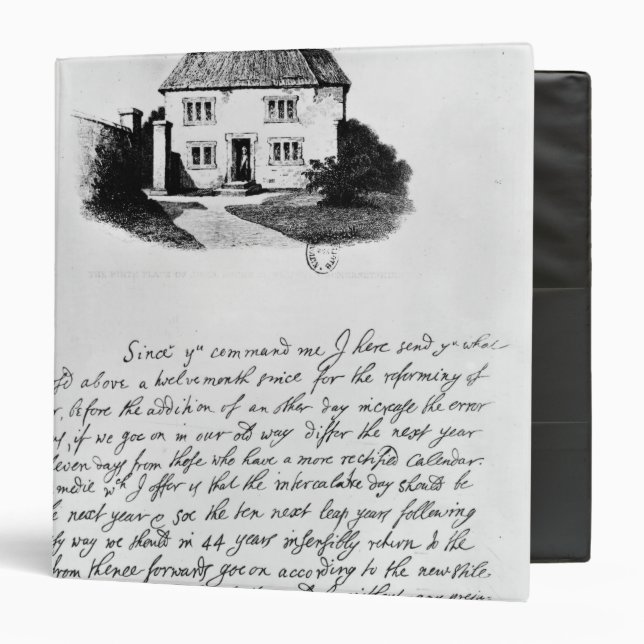 THE BIRTH PLACE OF JOHN LOCKE,
Since yu command me I here send yu what
above a twelvemonth since for the reforming of
r, before the addition of an other day increase the error
if we goe on in our old way differ the next year
leven days from those who have a more rectified Calendar.
medie wch I offer is that the intercalare day should be
e next year & soe the ten next leap years following
sy way we should in 44 years insensibly return to the
from thence forwards goe on according to the new stile
without any